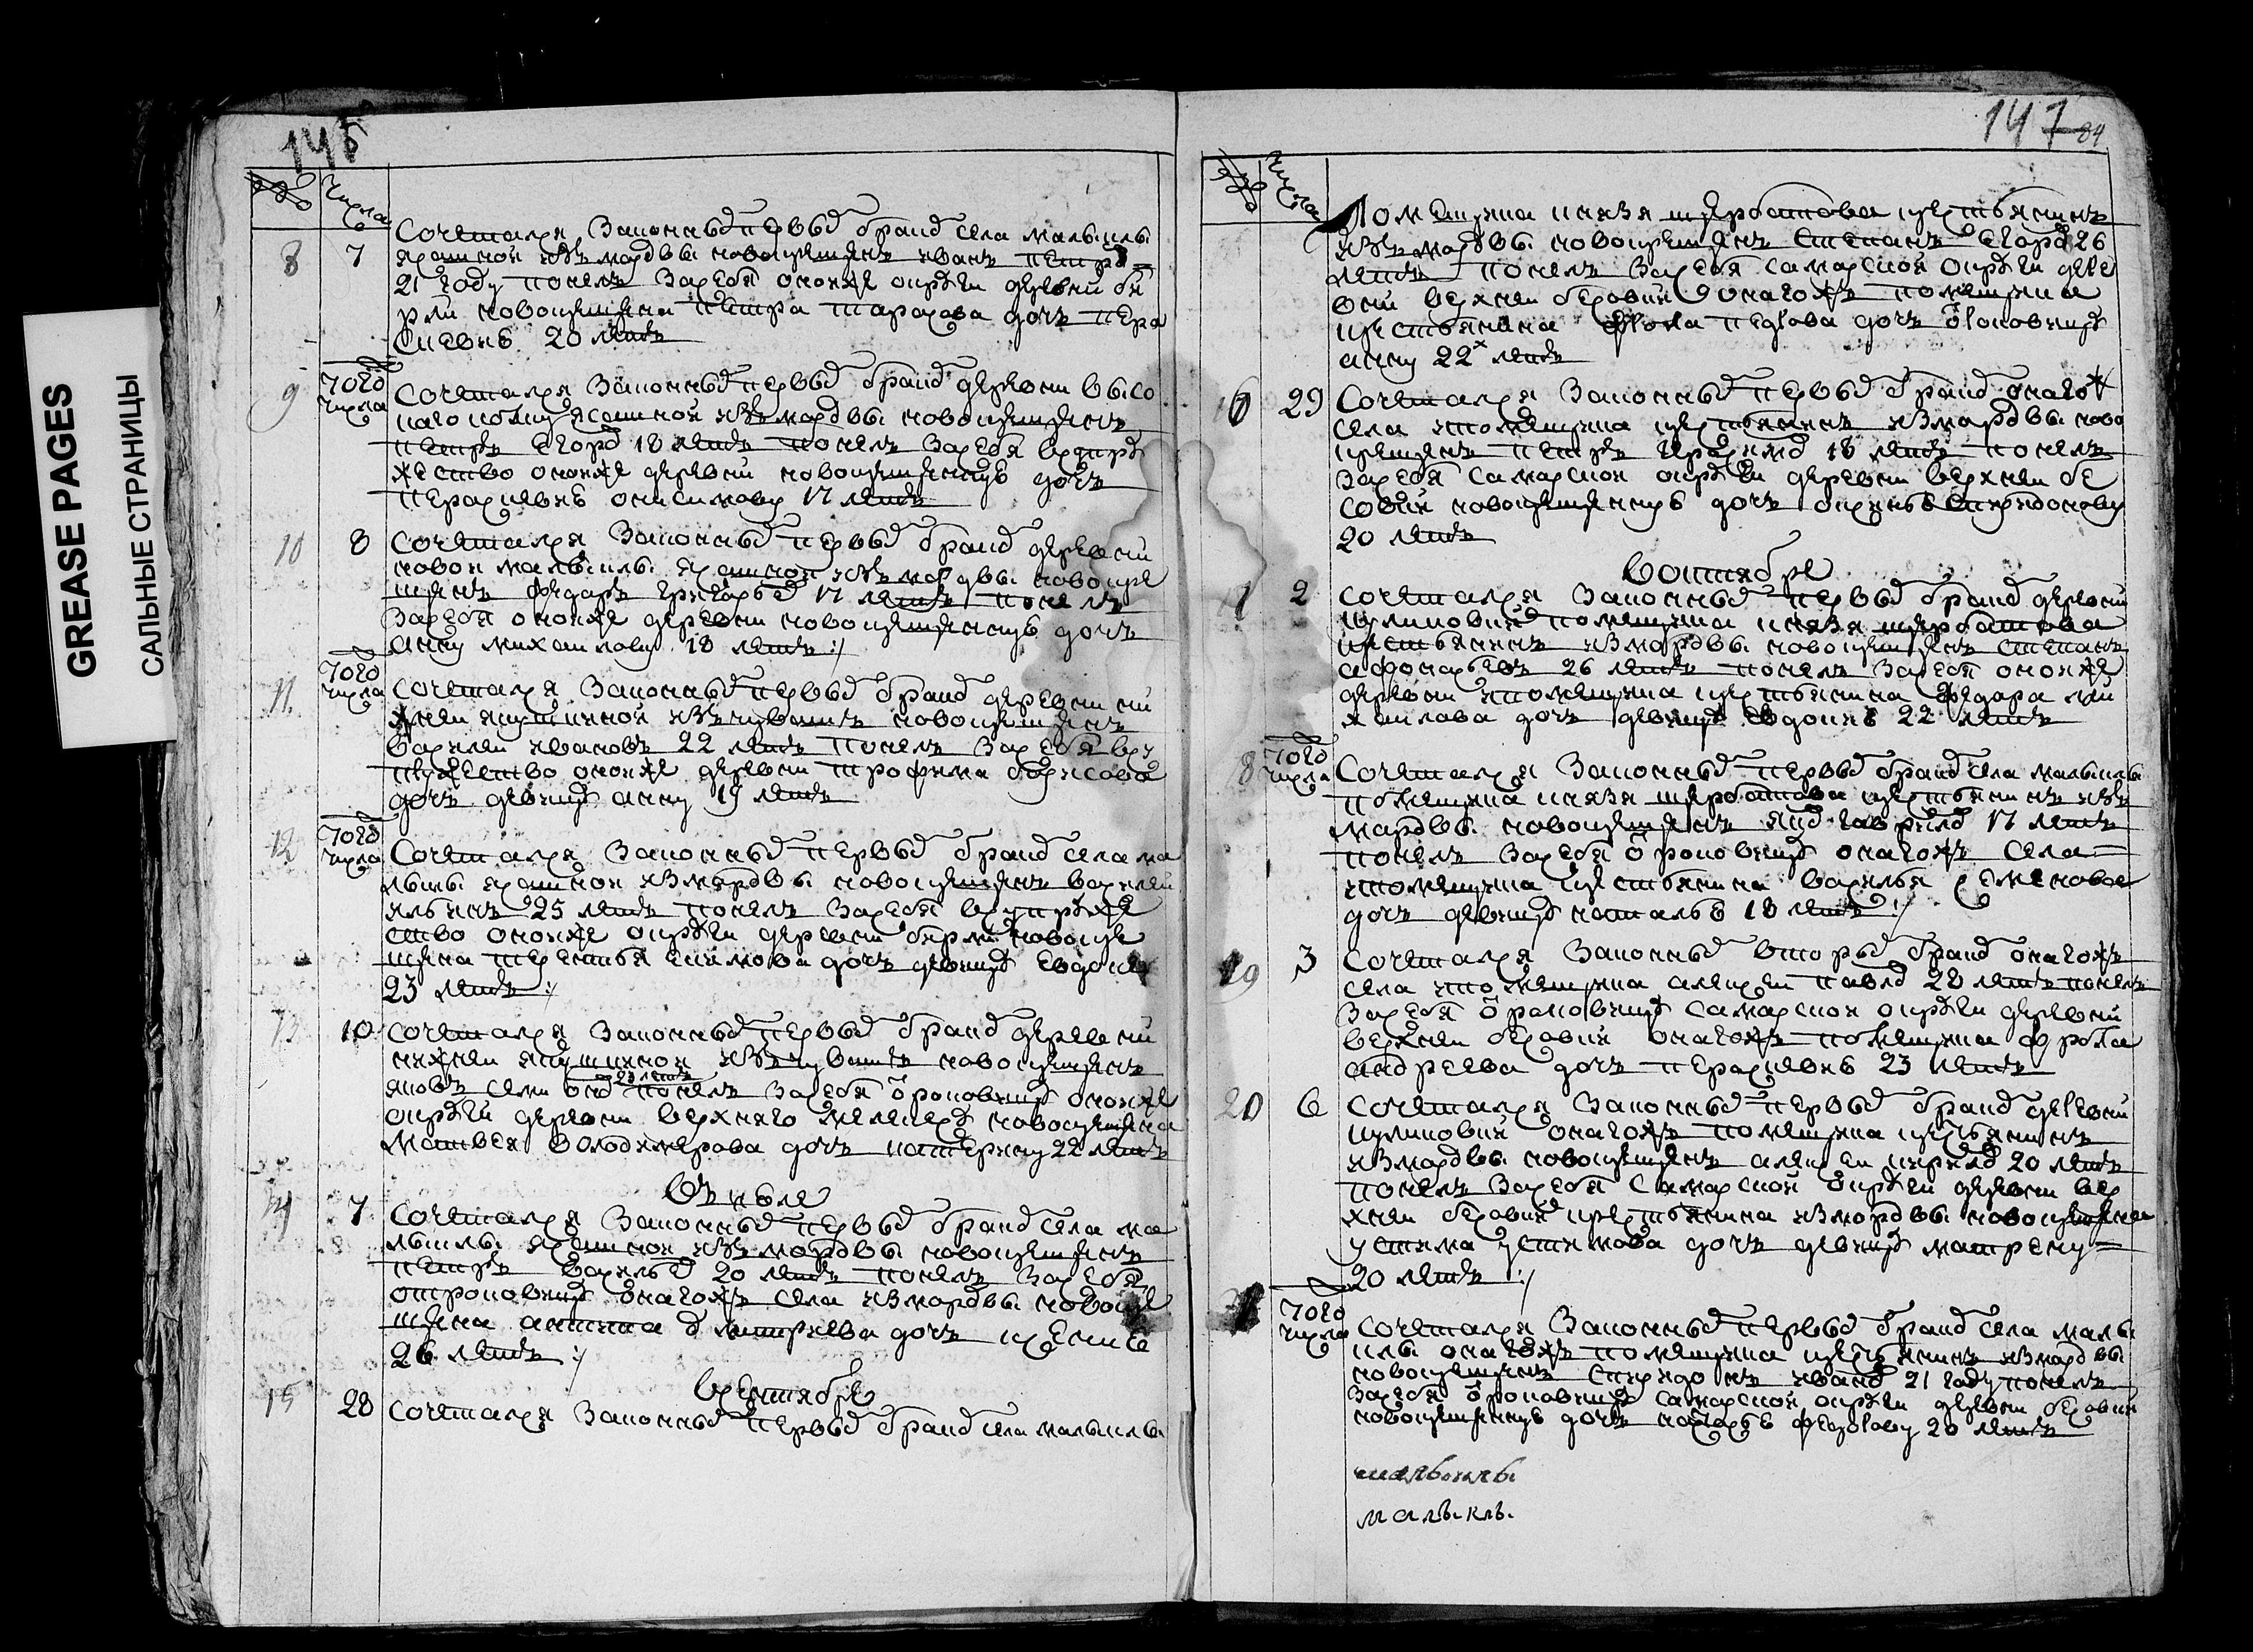 GREASE PAGES
САЛЬНЫЕ СТРАНИЦЫ
146
числа
8 7 Сочетался законным первым браком села малыклы
ясашной из мордвы новокрещен иван петров
21 году понел за себя оной же округи деревни би
рли новокрещена петра тарасова дочь пера
скевию 20 лет
9 того числа Сочетался законным первым браком деревни высо
каго колку ясашной из мордвы новокрещен
петр егоров 18 лет понел за себя в супру
жество оной же деревни новокрещенку дочь
перасковию онисимову 17 лет
10 8 Сочетался законным первым браком деревни
новой малыклы ясашной из мордвы новокре
щен федор григорьев 17 лет понел
за себя оной же деревни новокрещенку дочь
анну михаилову 18 лет
11 того числа Сочетался законным первым браком деревни ни
жней якушкиной из чуваш новокрещен
василей иванов 22 лет понел за себя в су
пружество оной же деревни трофима борисова
дочь девицу анну 19 лет
12 того числа Сочетался законным первым браком села ма
лыклы ясашной из мордвы новокрещен василей
ильин 25 лет понел за себя в супруже
ство оной же округи деревни бирли новокре
щена терентья екимова дочь девицу евдокию
23 лет
13 10 Сочетался законным первым браком деревни
нижней якушкиной из чуваш новокрещен
яков семионов 23 лет понел за себя отроковицу оной же
округи деревни верхняго мелекесу новокрещена
матвея володимерова дочь катерину 22 лет
в июле
14 7 Сочетался законным первым браком села ма
лыклы ясашной из мордвы новокрещен
петр васильев 20 лет понел за себя
отроковицу онагож села из мордвы новокре
щена антипа дмитриева дочь ксению
26 лет
в сентябре
15 28 Сочетался законным первым браком села малыклы
147 84
числа
помещика князя щербатова крестьянин
из мордвы новокрещен степан егоров 26
лет понел за себя самарской округи дере
вни верхней бесовки онагож помещика
крестьянина фрола дочь отроковицу
анну 22 лет
16 29 Сочетался законным первым браком онагож
села и помещика крестьянин из мордвы ново
крещен петр 18 лет понел
за себя самарской округи деревни верхней бе
совки новокрещенку дочь спиридонову
20 лет
в октябре
17 2 Сочетался законным первым браком деревни
куликовки помещика князя щербатова
крестьянин из мордвы новокрещен степан
афонасьев 26 лет понел за себя оной же
деревни и помещика крестьянина федора ми
хаилава дочь девицу евдокию 22 лет
18 того числа Сочетался законным первым браком села малыклы
помещика князя щербатова крестьянин из
мордвы новокрещен яков гаврилов 17 лет
понел за себя отроковицу онагож села
и помещика крестьянина василья семенова
дочь девицу наталью 18 лет
19 3 Сочетался законным вторым браком онагож
села и помещика алексей павлов 28 лет понел
за себя отроковицу самарской округи деревни
верхней бесовки онагож помещика фрола
андреева дочь перасковию 23 лет
20 6 Сочетался законным первым браком деревни
куликовки онагож помещика крестьянин
из мордвы новокрещен алексей кирилов 20 лет
понел за себя самарской округи деревни вер
хней бесовки крестьянина из мордвы новокрещена
устима устимова дочь девицу матрену
20 лет
того числа Сочетался законным первым браком села малы
клы онагож помещика крестьянин из мордвы
новокрещен спиридон иванов 21 году понел
за себя отроковицу самарской округи деревни бесовки
новокрещенку дочь федорову 20 лет
малыклы
малыклы